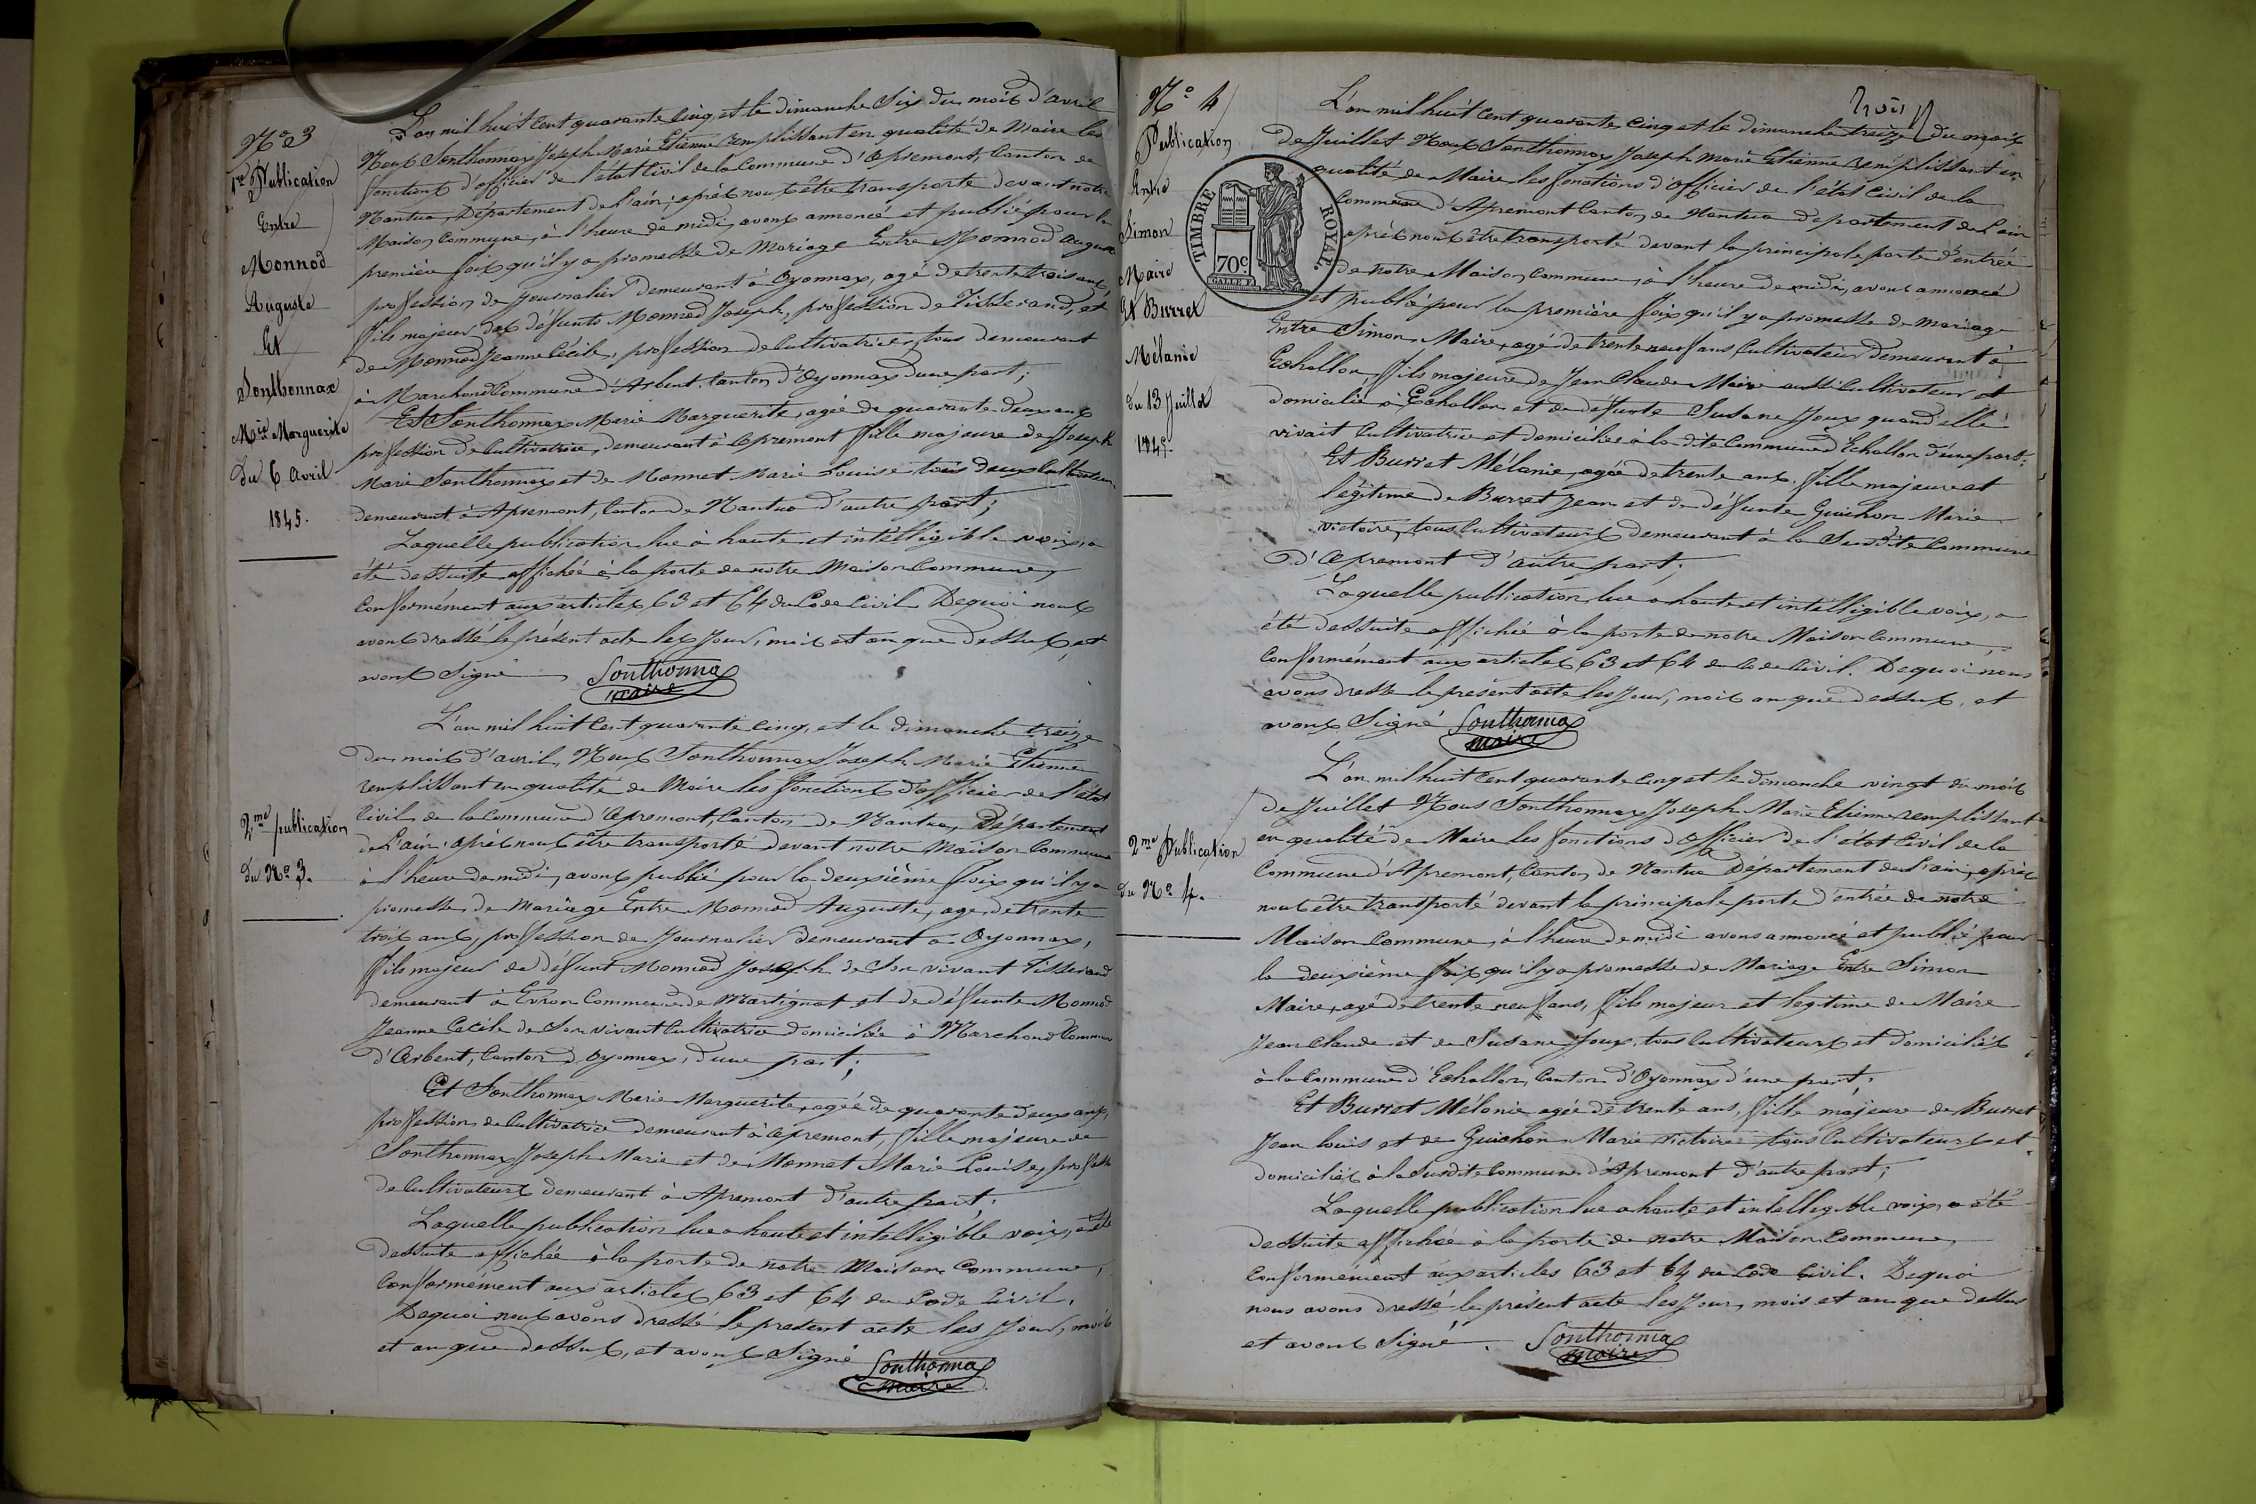 N° 3
1re Publication
Entre
Monnod
Auguste
Et
Sonthonnax
Mie Marguerite
Du 6 Avril
1845.
L'an mil huit cent quarante cinq, et le dimanche Six du mois d'avril
Nous Sonthonnax Joseph Marie Etienne remplissant en qualité de Maire les
fonctions d'officier de l'état civil de la Commune d'Apremont, Canton de
Nantua, Département de l'ain, après nous être transporté devant notre
Maison Commune, à l'heure de midi, avons annoncé et publié pour la
première fois qu'il y a promesse de Mariage Entre Monnod Auguste
profession de Journalier demeurant à Oyonnax, agé de trente trois ans,
fils majeur des défunts Monnod Joseph, profession de Tisserand, et
de Monnod Jeanne Cécile, profession de Cultivatrice, tous demeurant
à Marchond Commune d'Arbent, Canton d'Oyonnax d'une part;
Et Sonthonnax Marie Marguerite, agée de quarante deux ans
profession de Cultivatrice, demeurant à Apremont fille majeure de Joseph
Marie Sonthonnax et de Monnet Marie Louise tous deux Cultivateurs
demeurant à Apremont, Canton de Nantua d'autre part;
Laquelle publication lue à haute et intelligible voix, a
été dessuite affichée à la porte de notre Maison Commune,
Conformément aux articles 63 et 64 du Code Civil. Dequoi nous
avons dressé le présent acte les Jour, mois et an que dessus, et
avons Signé Sonthonnax
maire
2me publication
du N° 3.
L'an mil huit cent quarante cinq, et le dimanche treize
du mois d'avril, Nous Sonthonnax Joseph Marie Etienne
remplissant en qualité de Maire les fonctions d'officier de l'état
Civil de la Commune d'Apremont, Canton de Nantua, Département
de l'ain, après nous être transporté devant notre Maison Commune
à l'heure de midi, avons publié pour la deuxième fois qu'il y a
promesse de Mariage Entre Monnod Auguste, agé de trente
trois ans, profession de Journalier demeurant à Oyonnax,
fils majeur de défunt Monnod Joseph de Son vivant Tisserand
demeurant à Evron Commune de Martignat et de défunte Monnod
Jeanne Cécile de Son vivant Cultivatrice domiciliée à Marchond Commune
d'Arbent, Canton d'Oyonnax, d'une part;
Et Sonthonnax Marie Marguerite, agée de quarante deux ans,
profession de Cultivatrice demeurant à Apremont, fille majeure de
Sonthonnax Joseph Marie et de Monnet Marie Louise,
de Cultivateurs demeurant à Apremont d'autre part;
Laquelle publication lue a haute et intelligible voix, a été
dessuite affichée à la porte de notre Maison Commune,
Conformément aux articles 63 et 64 du Code Civil.
Dequoi nous avons dressé le présent acte les Jour, mois
et an que dessus, et avons Signé Sonthonnax
maire
trois
N° 4
Publication
Entre
Simon
Maire
Et Burret
Mélanie
du 13 Juillet
1845.
TIMBRE ROYAL.
70c.
L'an mil huit cent quarante cinq et le dimanche treize du mois
de Juillet Nous Sonthonnax Joseph Marie Etienne remplissant en
qualité de Maire les fonctions d'officier de l'état civil de la
Commune d'Apremont Canton de Nantua département de l'ain
après nous être transporté devant la principale porte d'entrée
de notre Maison Commune, à l'heure de midi, avons annoncé
et publié pour la première fois qu'il y a promesse de mariage
Entre Simon Maire, agé de trente neuf ans Cultivateur demeurant à
Echallon, fils majeure de Jean Claude Maire aussi Cultivateur et
domicilié à Echallon et de défunte Susane Joux quand elle
vivait Cultivatrice et domiciliée à la dite Commune d'Echallon d'une part;
Et Burret Mélanie, agée de trente ans, fille majeure et
légitime de Burret Jean et de défunte Guichon Marie
victoire, tous Cultivateurs demeurant à la Susdite Commune
d'Apremont d'autre part;
Laquelle publication lue a haute et intelligible voix, a
été dessuite affichée à la porte de notre Maison Commune,
Conformément aux articles 63 et 64 du Code Civil. Dequoi nous
avons dressé le présent acte les Jour, mois an que dessus, et
avons Signé Sonthonnax
maire
2me Publication
du N° 4.
L'an mil huit cent quarante cinq et le dimanche vingt du mois
de Juillet Nous Sonthonnax Joseph Marie Etienne remplissant
en qualité de Maire les fonctions d'officier de l'état Civil de la
Commune d'Apremont, Canton de Nantua Département de l'ain, après
nous être transporté devant la principale porte d'entrée de notre
Maison Commune, à l'heure de midi avons annoncé et publié pour
la deuxième fois, qu'il y a promesse de Mariage Entre Simon
Maire, agé de trente neuf ans, fils majeur et legtime de Maire
Jean Claude et de Susane Joux, tous Cultivateurs et domiciliés
à la Commune d'Echallon, Canton d'Oyonnax d'une part;
Et Burret Mélanie agée de trente ans, fille majeure de Burret
Jean Louis et de Guichon Marie victoire tous Cultivateurs et
domiciliés à la Susdite Commune d'Apremont d'autre part;
Laquelle publication lue a haute et intelligible voix, a été
dessuite affichée à la porte de notre Maison Commune,
Conformément aux articles 63 et 64 du Code Civil. Dequoi
nous avons dressé le présent acte les Jour, mois et an que dessus
et avons Signé. Sonthonnax
maire